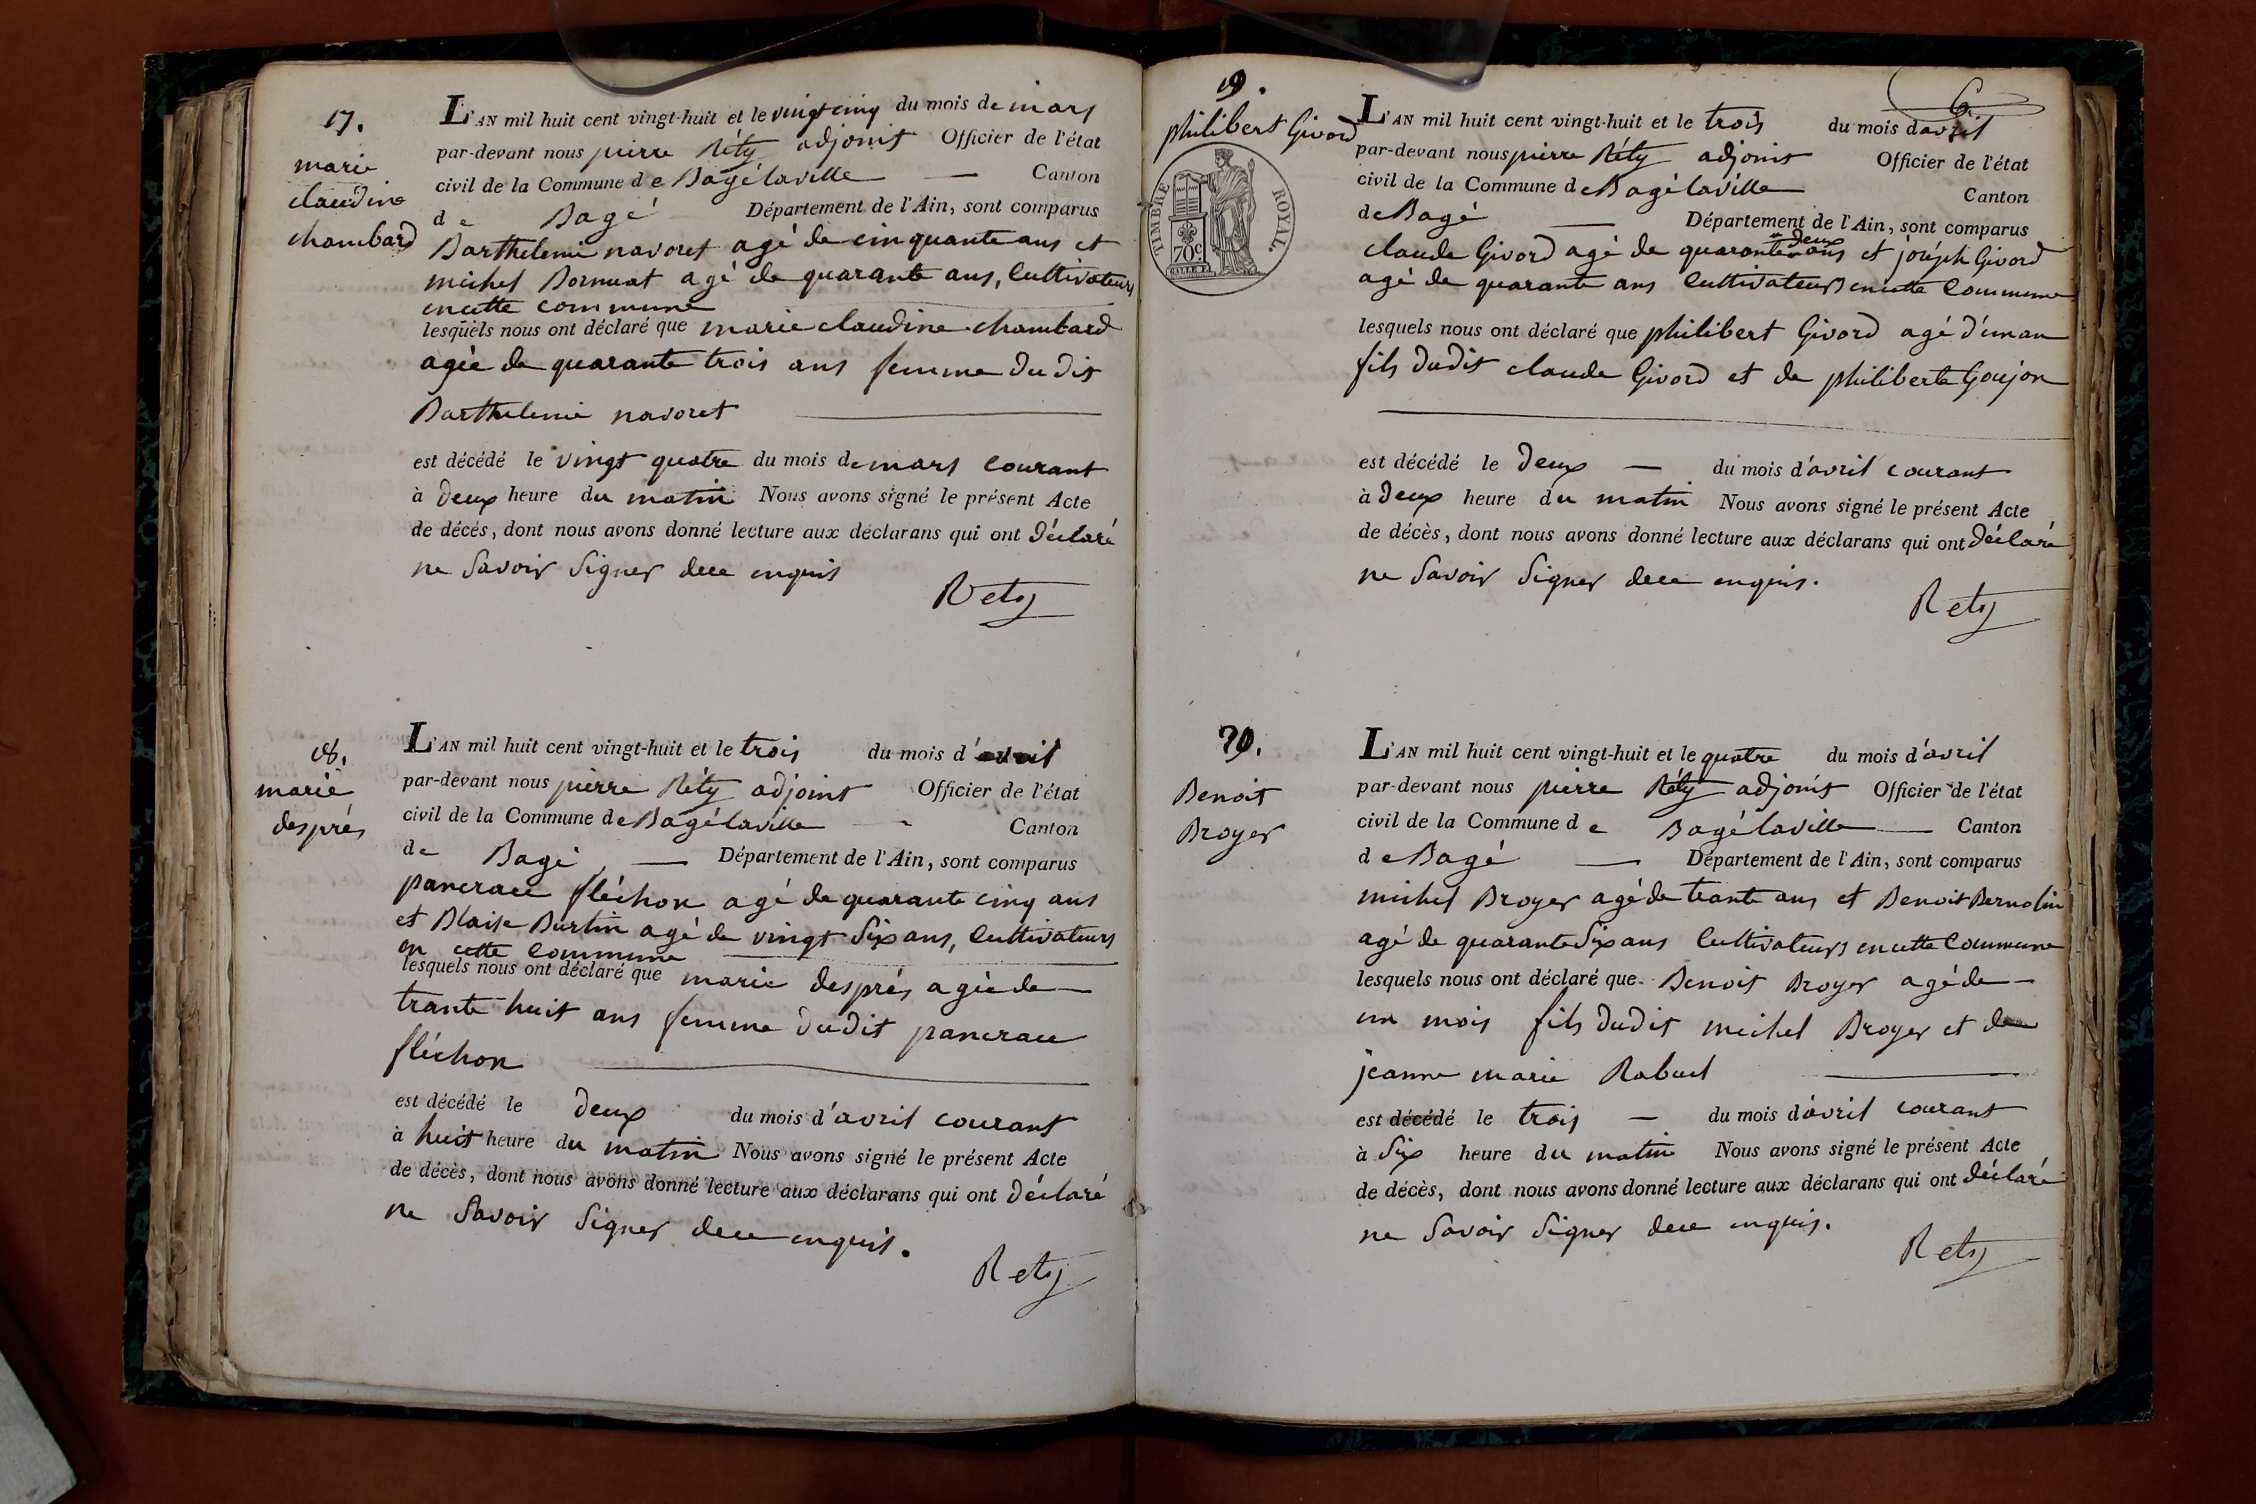 17.
marie
claudine
chambard
L'AN mil huit cent vingt-huit et le vingt cinq du mois de mars
par-devant nous pierre Réty adjoint Officier de l'état
civil de la Commune de Bagélaville — Canton
de Bagé Département de l'Ain, sont comparus
Barthelemi navoret agé de cinquante ans et
michel Bornuat agé de quarante ans, Cultivateurs
en cette commune
lesquels nous ont déclaré que marie claudine chambard
agée de quarante trois ans femme du dit
Barthelemi navoret
est décédé le vingt quatre du mois de mars courant
à deux heure du matin Nous avons signé le présent Acte
de décès, dont nous avons donné lecture aux déclarans qui ont déclaré
ne Savoir Signer de ce enquis
Rety
18.
marie
després
L'AN mil huit cent vingt-huit et le trois du mois d'avril
par-devant nous pierre Réty adjoint Officier de l'état
civil de la Commune de Bagélaville - Canton
de Bagé — Département de l'Ain, sont comparus
pancrace fléchon agé de quarante cinq ans
et Blaise Burtin agé de vingt Six ans, Cultivateurs
en cette commune
lesquels nous ont déclaré que marie després agée de
trante huit ans femme dudit pancrace
fléchon
est décédé le deux du mois d'avril courant
à huit heure du matin Nous avons signé le présent Acte
de décès, dont nous avons donné lecture aux déclarans qui ont déclaré
ne Savoir Signer de ce enquis.
Rety
6
19.
philibert Givord
TIMBRE ROYAL.
70c
L'AN mil huit cent vingt-huit et le trois du mois d'avril
par-devant nous pierre Réty adjoint Officier de l'état
civil de la Commune de Bagélaville Canton
de Bagé — Département de l'Ain, sont comparus
deux
claude Givord agé de quarante ans et joséph Givord
agé de quarante ans Cultivateurs en cette Commune
lesquels nous ont déclaré que philibert Givord agé d'un an
fils dudit claude Givord et de philiberte Goujon
est décédé le deux — du mois d'avril courant
à deux heure du matin Nous avons signé le présent Acte
de décès, dont nous avons donné lecture aux déclarans qui ont déclaré
ne Savoir Signer de ce enquis.
Rety
20.
Benoit
Broyer
L'AN mil huit cent vingt-huit et le quatre du mois d'avril
par-devant nous pierre Réty adjoint Officier de l'état
civil de la Commune de Bagélaville — Canton
de Bagé — Département de l'Ain, sont comparus
michel Broyer agé de trante ans et Benoit Bernolin
agé de quarante Six ans Cultivateurs en cette Commune
lesquels nous ont déclaré que Benoit Broyer agé de
un mois fils dudit michel Broyer et de
jeanne marie Rabuel
est décédé le trois — du mois d'avril courant
à Six heure du matin Nous avons signé le présent Acte
de décès, dont nous avons donné lecture aux déclarans qui ont déclaré
ne Savoir Signer de ce enquis.
Rety